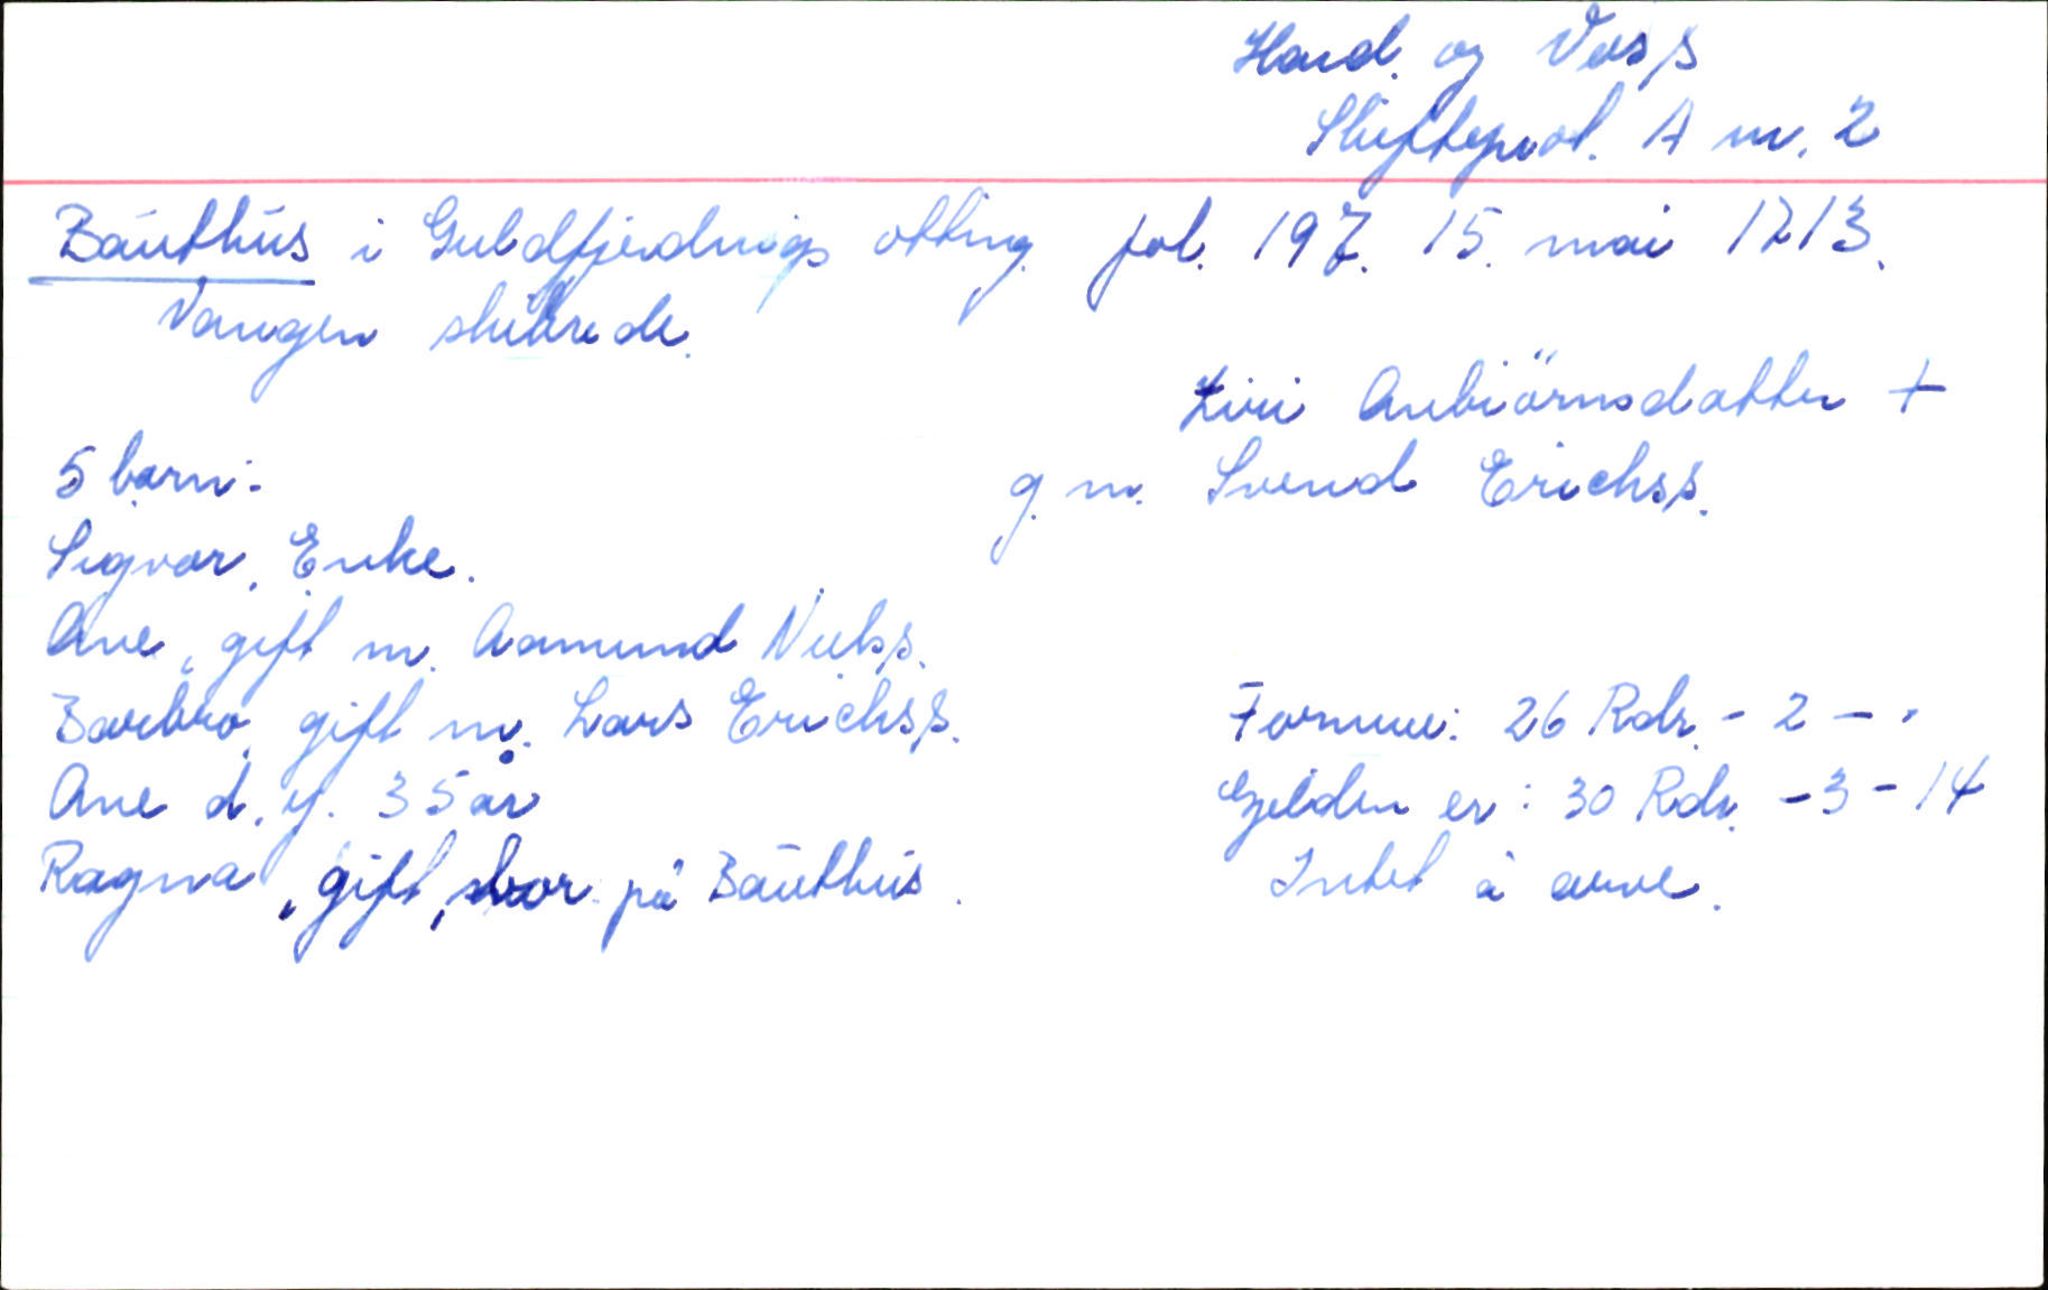 Hard. og Voss
Skifteprot. A nr. 2
Bäuthùs i Guldfjerdings otting fol. 197. 15. mai 1713.
Vangen skibrede.
Livi Anbiörnsdatter +
g. m. Svend Erichss.
5 barn:
Sigvor, Enke.
Ane, gift m. Aamund Nielss.
Barbro, gift m. Lars Erichss.
Ane d. y. 35 år
Ragna, gift, bor på Bäuthùs.
Formue: 26 Rdr. - 2 - .
Gjelden er: 30 Rdr. - 3 - 14
Intet å arve.